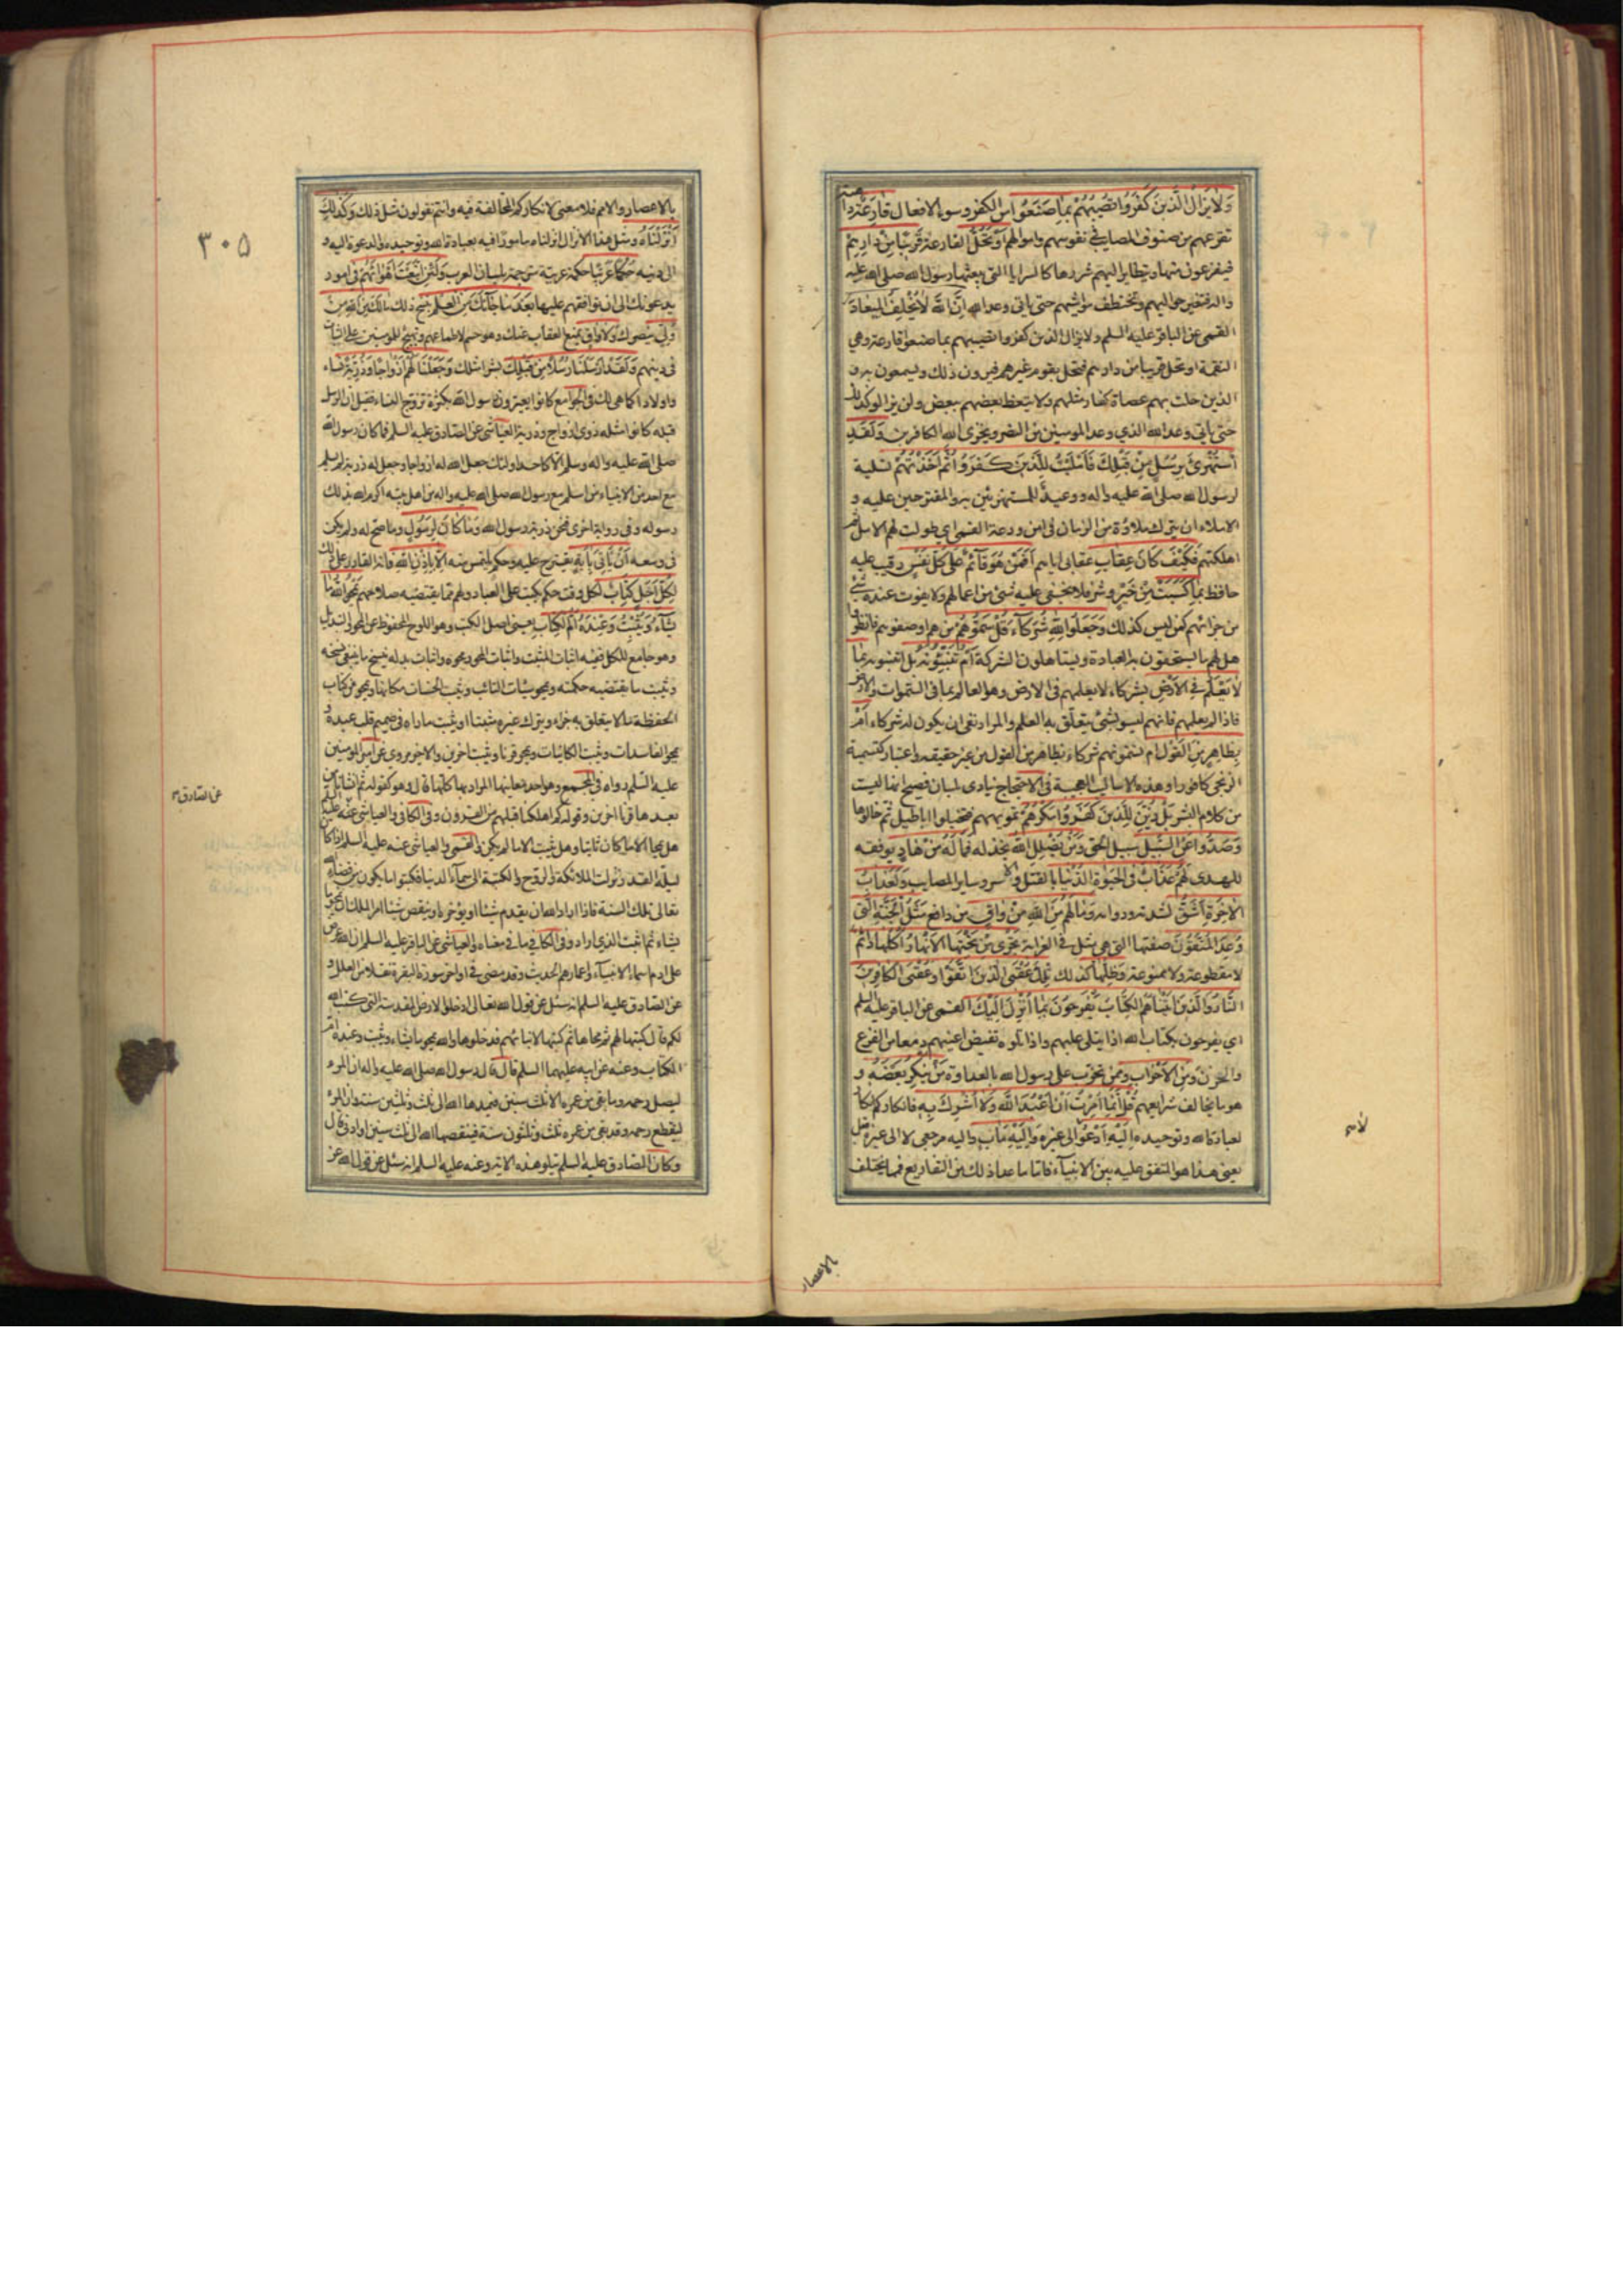 وَلا يَزالُ الَّذينَ كَفَرُوا تُصيبُهُمْ بِما صَنَعُوا من الكفر وسوء الافعال قارِعَةٌ داهية
تقرعهم من صنوف المصايب في نفوسهم واموالهم اَوْ تَحُلُّ القارعة قَريباً مِنْ دارِهِمْ
فيفزعون منها ويتطاير اليهم شررها كالسرايا التى يبعثها رسول الله صلى الله عليه
واله فتغير حواليهم وتختطف مواشيهم حتى ياتى وعد الله اِنَّ اللهَ لا يُخْلِفُ الميعادَ
القمى عن الباقر عليه السلم ولا يزال الذين كفروا تصيبهم بما صنعوا قارعة وهي
النقمة او تحل قريبا من دارهم فتحل بقوم غيرهم فيرون ذلك ويسمعون به و
الذين حلت بهم عصاة كفار مثلهم ولا يتعظ بعضهم ببعض ولن يزالوا كذلك
حتى ياتى وعد الله الذي وعد المومنين من النصر ويخزى الله الكافرين وَلَقَدِ
اسْتُهْزِئَ بِرُسُلٍ مِنْ قَبْلِكَ فَاَمْلَيْتُ لِلَّذينَ كَفَرُوا ثُمَّ اَخَذْتُهُمْ تسلية
لرسول الله صلى الله عليه واله ووعيد للمستهزئين به والمقترحين عليه و
الاملاء ان يترك ملاوة من الزمان في امن ودعة القمى اي طولت لهم الامل ثم
اهلكتهم فَكَيْفَ كانَ عِقابِ عقابى اياهم اَفَمَنْ هُوَ قآئِمٌ عَلى كُلِّ نَفْسٍ رقيب عليه
حافظ بِما كَسَبَتْ مِنْ خَيْرٍ وشر فلا يخفى عليه شئ من اعمالهم ولا يفوت عنده شئ
من جزائهم كمن ليس كذلك وَجَعَلُوا لِلّهِ شُرَكآءَ قُلْ سَمُّوهُمْ من هم او صفوهم فانظروا
هل لهم ما يستحقون به العبادة ويستاهلون الشركة اَمْ تُنَبِّئُونَهُ بل اتنبئونه بِما
لا يَعْلَمُ فِي الاَرْضِ بشركاء لا يعلمهم في الارض وهو العالم بما في السموات والارض
فاذا لم يعلمهم فانهم ليسو بشئ يتعلق به العلم والمراد نفى ان يكون له شركاء اَمْ
بِظاهِرٍ مِنَ الْقَوْلِ ام تسمونهم شركاء بظاهر من القول من غير حقيقة واعتبار كتسمية
الزنجى كافورا وهذه الاساليب العجيبة في الاحتجاج ينادى بلسان فصيح انها ليست
من كلام البشر بَلْ زُيِّنَ لِلَّذينَ كَفَرُوا مَكْرُهُمْ تمويههم فتخيلوا اباطيل ثم خالوها
وَصُدُّوا عَنِ السَّبيلِ سبيل الحق وَمَنْ يُضْلِلِ اللهُ يخذله فَما لَهُ مِنْ هادٍ يوفقه
للهدى لَهُمْ عَذابٌ فِي الْحَيوةِ الدُّنْيا بالقتل والاسر وساير المصايب وَلَعَذابُ
الاخِرَةِ اَشَقُّ لشدته ودوامه وَما لَهُمْ مِنَ اللهِ مِنْ واقٍ من دافع مَثَلُ الْجَنَّةِ الَّتى
وُعِدَ الْمُتَّقُونَ صفتها التى هي مثل في الغرابة تَجْرى مِنْ تَحْتِهَا الاَنْهارُ اُكُلُها دآئِمٌ
لا مقطوعة ولا ممنوعة وَظِلُّها كذلك تِلْكَ عُقْبَى الَّذينَ اتَّقَوْا وَعُقْبَى الْكافِرينَ
النّارُ وَالَّذينَ اتَيْناهُمُ الْكِتابَ يَفْرَحُونَ بِما اُنْزِلَ اِلَيْكَ القمى عن الباقر عليه السلم
اي يفرحون بكتاب الله اذا يتلى عليهم واذا تلوه تفيض اعينهم دمعا من الفزع
والحزن وَمِنَ الاَحْزابِ وممن تحزب على رسول الله بالعداوة مَنْ يُنْكِرُ بَعْضَهُ و
هو ما يخالف شرايعهم قُلْ اِنَّما اُمِرْتُ اَنْ اَعْبُدَ اللهَ وَلا اُشْرِكَ بِهِ فانكاركم انكار
لعبادة الله وتوحيده اِلَيْهِ اَدْعُوا لا الى غيره وَاِلَيْهِ مَابِ واليه مرجعى لا الى غيره
يعنى هذا هو المتفق عليه بين الانبياء فاما ما عدا ذلك من التفاريع فمما يختلف
بالاعصار
بالاعصار والامم فلا معنى لانكاركم المخالفة فيه وانتم تقولون مثل ذلك وَكَذلِكَ
اَنْزَلْناهُ ومثل هذا الانزال انزلناه مامورا فيه بعبادة الله وتوحيده والدعوة اليه و
الى دينه حُكْماً عَرَبِيّاً حكمة عربية مترجمة بلسان العرب وَلَئِنِ اتَّبَعْتَ اَهْوآءَهُمْ في امور
يدعونك الى ان توافقهم عليها بَعْدَ ما جآءَكَ مِنَ الْعِلْمِ بنسخ ذلك ما لَكَ مِنَ اللهِ مِنْ
وَلِيٍّ ينصرك وَلا واقٍ يمنع العقاب عنك وهو حسم لاطماعهم وتهييج للمومنين على الثبات
في دينهم وَلَقَدْ اَرْسَلْنا رُسُلاً مِنْ قَبْلِكَ بشرا مثلك وَجَعَلْنا لَهُمْ اَزْواجاً وَذُرِّيَّةً نساء
واولادا كما هي لك في الجوامع كانوا يعيرون رسول الله بكثرة تزوج النساء فقيل ان الرسل
قبله كانوا مثله ذوى ازواج وذرية العياشى عن الصادق عليه السلم فما كان رسول الله
صلى الله عليه واله وسلم الا كاحد اولئك جعل الله له ازواجا وجعل له ذرية لم يسلم
مع احد من الانبياء من اسلم مع رسول الله صلى الله عليه واله من اهل بيته اكرم الله بذلك
رسوله وفى رواية اخرى فنحن ذرية رسول الله وَما كانَ لِرَسُولٍ وما صح له ولم يكن
في وسعه اَنْ يَأْتِيَ بِايَةٍ يقترح عليه وحكم يلتمس منه اِلاّ بِاِذْنِ اللهِ فانه القادر على ذلك
لِكُلِّ اَجَلٍ كِتابٌ لكل وقت حكم يكتب على العباد ولهم ما يقتضيه صلاحهم يَمْحُو اللهُ ما
يَشآءُ وَيُثْبِتُ وَعِنْدَهُ اُمُّ الْكِتابِ يعنى اصل الكتب وهو اللوح المحفوظ عن المحو والتبديل
وهو جامع للكل ففيه اثبات المثبت واثبات المحو ومحوه واثبات بدله ينسخ ما ينبغى نسخه
ويثبت ما يقتضيه حكمته ويمحو سيئات التائب ويثبت الحسنات مكانها ويمحو من كتاب
الحفظة ما لا يتعلق به جزاء ويترك غيره مثبتا او يثبت ما راه في صميم قلب عبده و
يمحو الفاسدات ويثبت الكائنات ويمحو قرنا ويثبت اخرين والاخير مروي عن امير المومنين
عليه السلم رواه في المجمع
بعدهم قرنا اخرين وقوله كم اهلكنا قبلهم من القرون وفى الكافى والعياشى عنه عليه السلم
هل يمحا الا ما كان ثابتا وهل يثبت الا ما لم يكن والقمى والعياشى عنه عليه السلم اذا كان
ليلة القدر نزلت الملائكة والروح والكتبة الى سماء الدنيا فيكتبوا ما يكون من قضاء الله
تعالى تلك السنة فاذا اراد الله ان يقدم شيئا او يؤخره او ينقص شيئا امر الملك ان يمحو ما
يشاء ثم اثبت الذي اراد وفى الكافى ما في معناه والعياشى عن الباقر عليه السلم ان الله عرض
على ادم اسماء الانبياء واعمارهم الحديث وقد مضى في اواخر سورة البقرة نقلا من العلل و
عن الصادق عليه السلم انه سئل عن قول الله تعالى ادخلوا الارض المقدسة التى كتب الله
لكم قال كتبها لهم ثم محاها ثم كتبها لابنائهم فدخلوها والله يمحو ما يشاء ويثبت وعنده ام
الكتاب وعنه عن ابيه عليهما السلم قال قال رسول الله صلى الله عليه واله ان المرء
ليصل رحمه وما بقى من عمره الا ثلث سنين فيمدها الله الى ثلث وثلثين سنة وان المرء
ليقطع رحمه وقد بقى من عمره ثلث وثلثون سنة فينقصها الله الى ثلث سنين او ادنى قال
وكان الصادق عليه السلم يتلو هذه الاية وعنه عليه السلم انه سئل عن قول الله عز
٣٠٥
عن الصادق